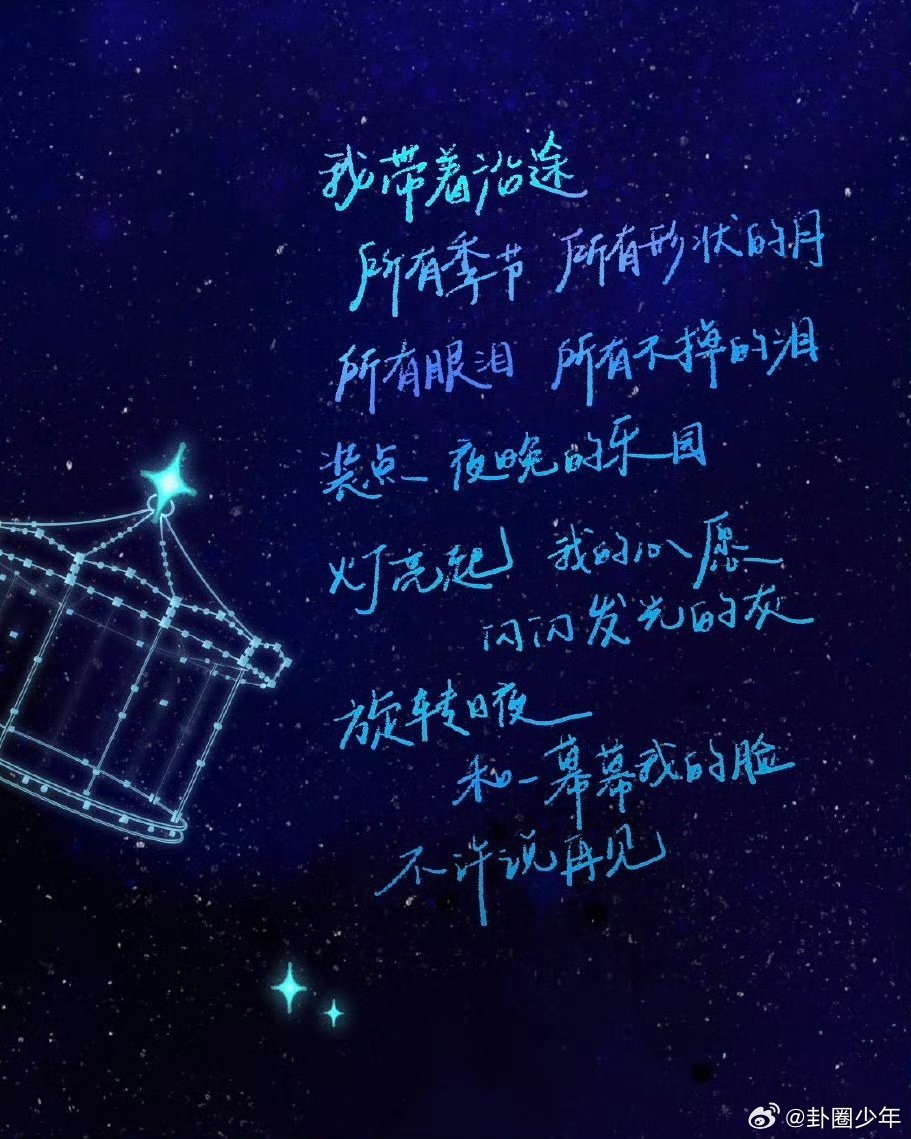 我带着沿途
所有季节 所有形状的月
所有眼泪 所有不掉的泪
装点 夜晚的乐园
灯亮起 我的心愿
闪闪发光的灰
旋转日夜
和一幕幕我的脸
不许说再见
@卦圈少年